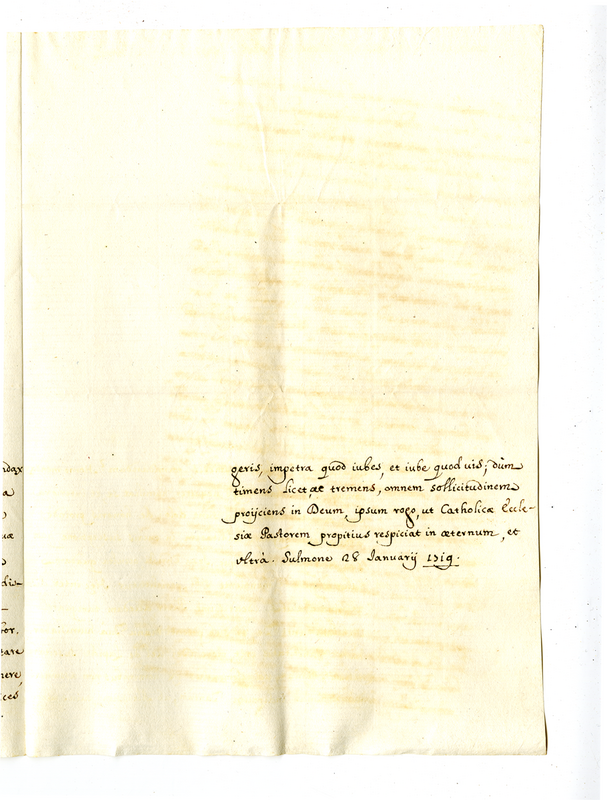 ndax
a
uæ
dis-
for.
tare
nere,
ices
geris, impetra quod iubes, et iube quod uis; dùm
timens licet, ac tremens, omnem sollicitudinem
proijciens in Deum, ipsum rogo, ut Catholicæ Eccle-
siæ Pastorem propitius respiciat in æternum, et
vltrà. Sulmone 28 Ianuarij 1719.